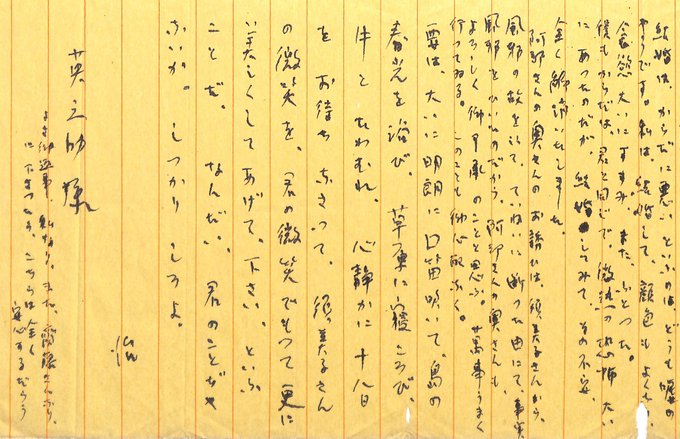 結婚は、からだに悪いといふのは、どうも嘘の
やうです。私は、結婚して、顔色もよくなり、
食慾大いにすすみ、また、ふとつた。
僕もからだは、君と同じで、微熱の恐怖 大い
にあつたのだが、結婚してみて その不安、
全く解消いたしました。
阿部さんの奥さんのお話では、須美子さんから、
風邪の故を以て、ていねいに断つた由にて、事実
風邪をひいたのだから、阿部さんの奥さんも、
よろしく御了承のことと思ふ。万事うまく
行つてゐる。このことも御心配なく。
要は、大いに明朗に口笛吹いて、島の
春光を浴び、草原に寝ころび、
牛とたはむれ、心静かに十八日
をお待ちなさつて、須美子さん
の微笑を、君の微笑でもつて更に
い美しくしてあげて、下さい、といふ
ことだ。なんだい、君のことぢや
ないか。しつかりしろよ。
治
英之助様